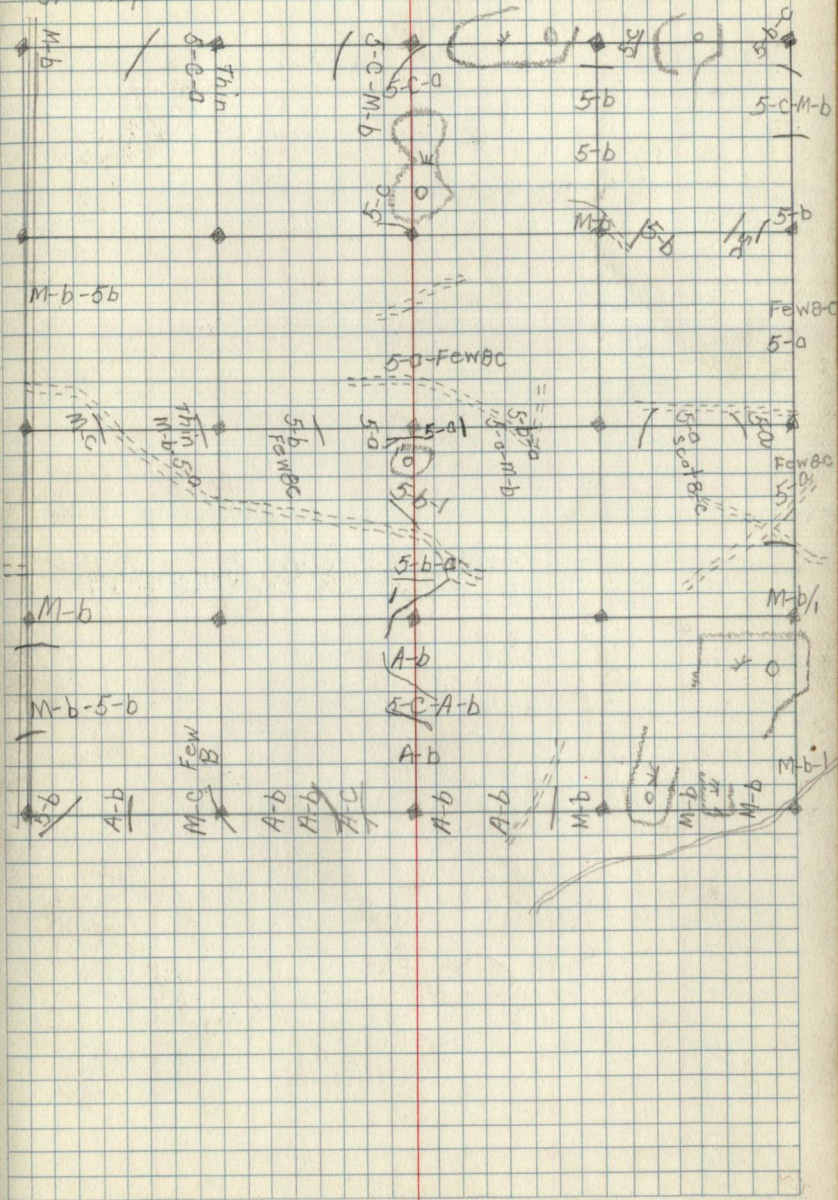 M-b
Thin
5-C-a
5-C-M-b
5-C-a
5-b
5-C-M-b
5-b
5-C
M-b
5-b
5-b
M-b-5b
Few8-C
5-a
5-a-Few8C
M-C
Thin
M-b-5a
5-b
Few8C
5-a
5-a1
5-b-a
5-a-m-b
5-a
scat8-c
5a
Few8-C
5-a
5-b-1
5-b-a
M-b
1
M-b/1
A-b
M-b-5-b
5-C-A-b
A-b
M-C Few
B
M-b-1
5-b
A-b
A-b
A-b
A-C
A-b
A-b
M-b
M-b
M-b